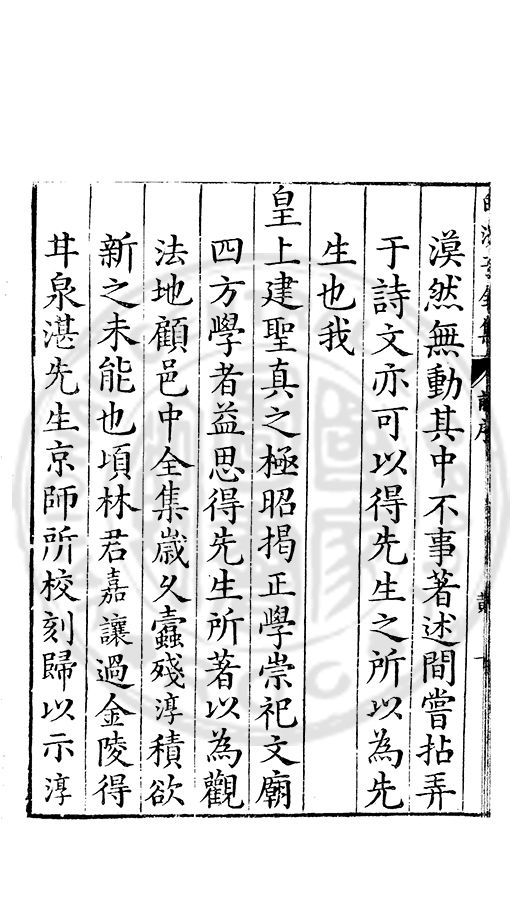 漠然無動其中不事著述間嘗拈弄
于詩文亦可以得先生之所以為先
生也我
皇上建聖真之極昭揭正學崇祀文廟
四方學者益思得先生所著以為觀
法地顧邑中全集歲久蠹殘淳積欲
新之未能也頃林君嘉讓過金陵得
甘泉湛先生京師所校刻歸以示淳